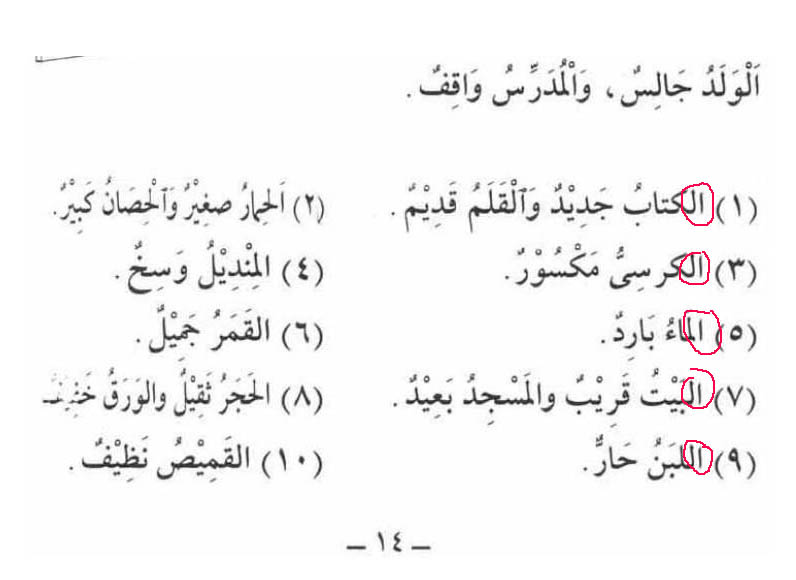 اَلْوَلَدُ جَالِسٌ، وَٱلْمُدَرِّسُ وَاقِفٌ.
(١) الكتابُ جَدِيْدٌ وَٱلْقَلَمُ قَدِيْمٌ. (٢) اَلحِمارُ صغِيْرٌ وَٱلْحِصَانُ كَبِيْرٌ.
(٣) الكرسِىُّ مَكْسُوْرٌ. (٤) المِنْدِيْلُ وَسِخٌ.
(٥) الماءُ بَارِدٌ. (٦) القَمَرُ جَمِيْلٌ.
(٧) البَيْتُ قَرِيْبٌ والمَسْجِدُ بَعِيْدٌ. (٨) الحَجَرُ ثَقِيْلٌ والوَرَقُ
(٩) اللبَنُ حَارٌّ. (١٠) القَمِيْصُ نَظِيْفٌ.
– ١٤ –